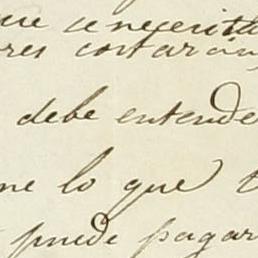 que se necesita
res cortaran
debe entende
ne lo que
puede pagar